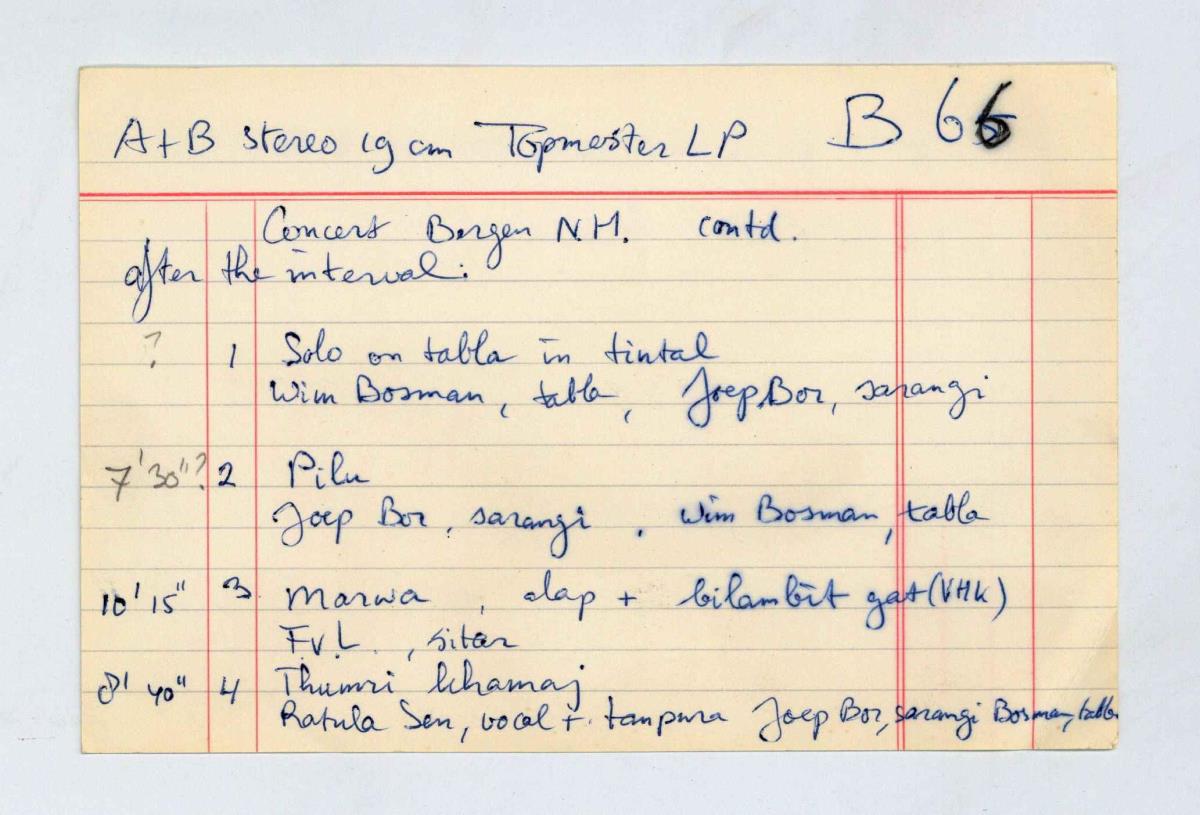 A+B stereo 19 cm Topmaster LP B 66
Concert Bergen N.H. contd.
after the interval:
? 1 Solo on tabla in tintal
Wim Bosman, tabla, Joep Bor, sarangi
7'30"? 2 Pilu
Joep Bor, sarangi, Wim Bosman, tabla
10'15" 3 Marwa, alap + bilambit gat (VHK)
F.v.L., sitar
8'40" 4 Thumri khamaj
Ratula Sen, vocal + tanpura Joep Bor, sarangi Bosman, tabla